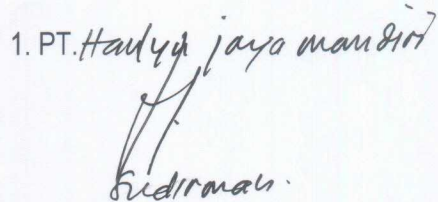 1. PT. Hadyir jaya mandiri
Sudirman.